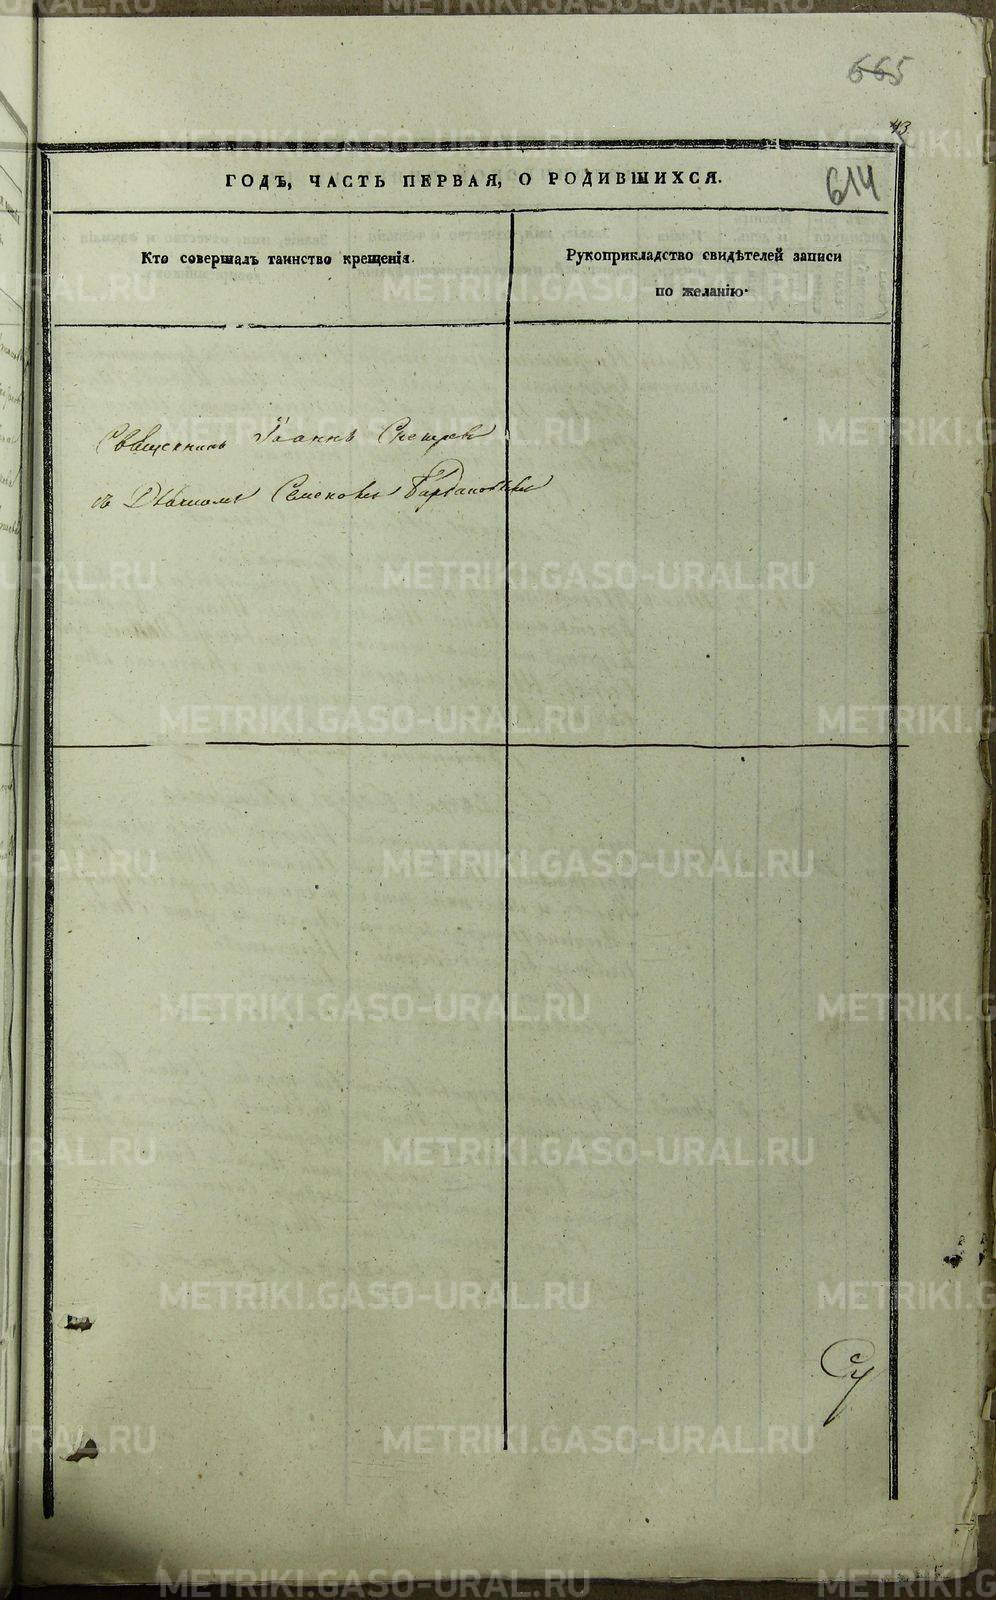 665
43
614
ГОДЪ, ЧАСТЬ ПЕРВАЯ, О РОДИВШИХСЯ.
Кто совершалъ таинство крещенія.
Рукоприкладство свидѣтелей записи
по желанію.
Священникъ Іоаннъ
съ Дьячкомъ Семеномъ
METRIKI.GASO-URAL.RU